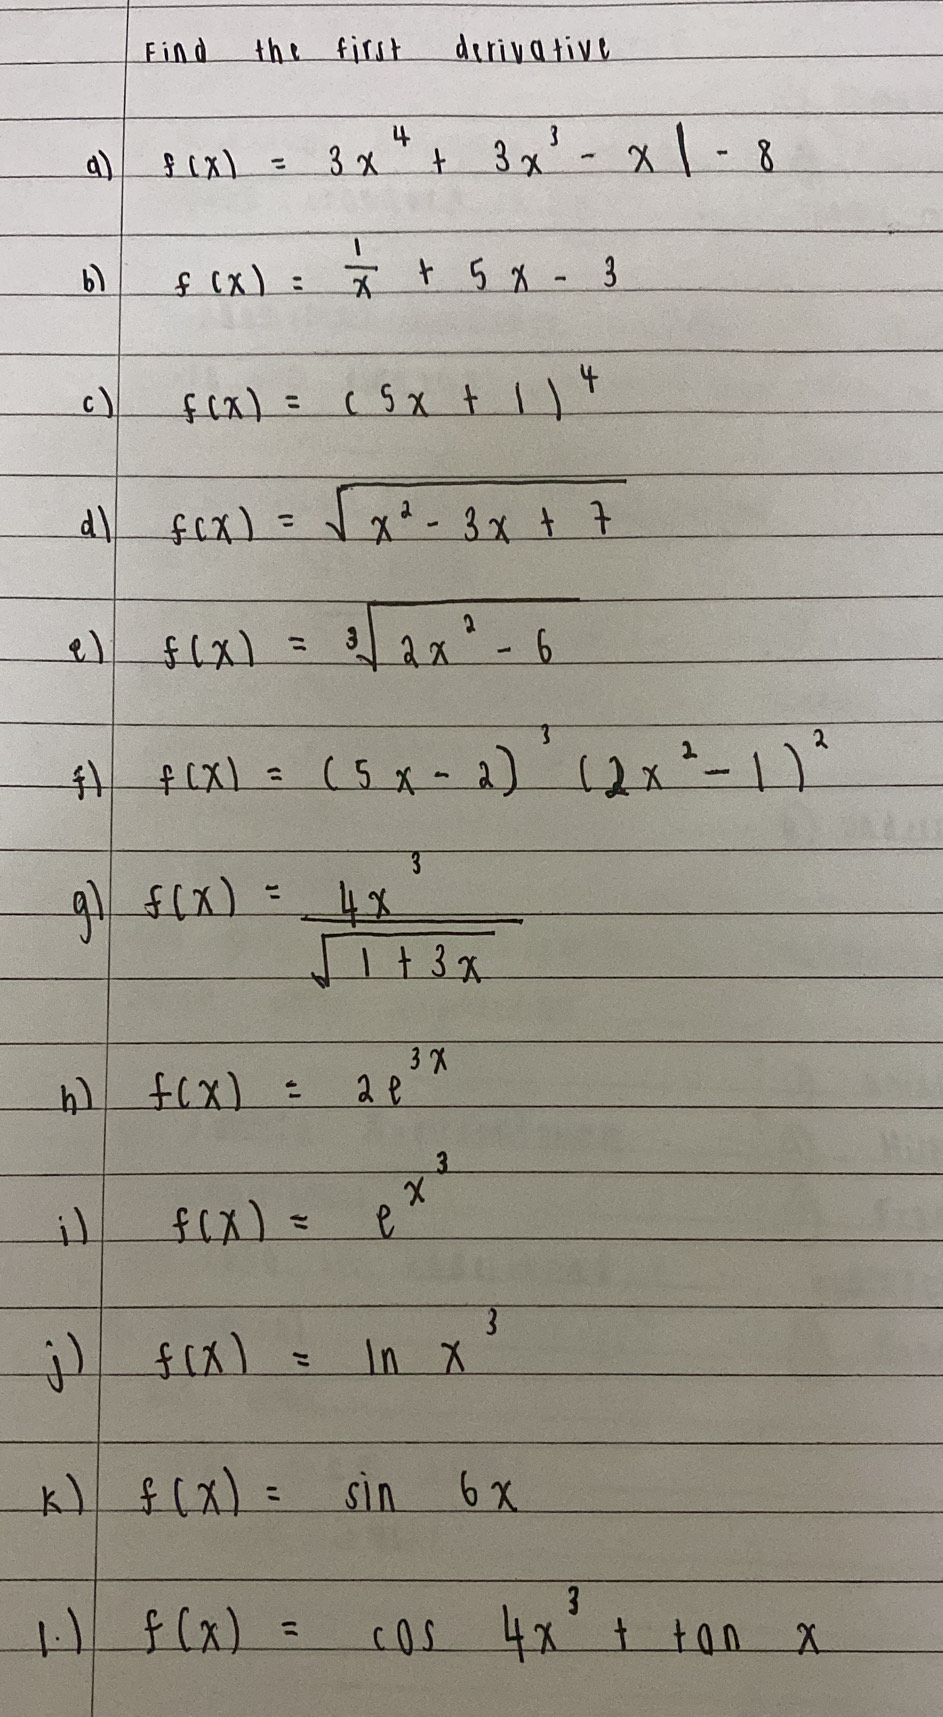 Find the first derivative
a) f(x) = 3x⁴ + 3x³ - x | - 8
b) f(x) = 1/x + 5x - 3
c) f(x) = (5x + 1)⁴
d) f(x) = √(x² - 3x + 7)
e) f(x) = ³√(2x² - 6)
f) f(x) = (5x - 2)³ (2x² - 1)²
g) f(x) = 4x³/√(1 + 3x)
h) f(x) = 2e^(3x)
i) f(x) = e^(x³)
j) f(x) = ln x³
k) f(x) = sin 6x
l.) f(x) = cos 4x³ + tan x